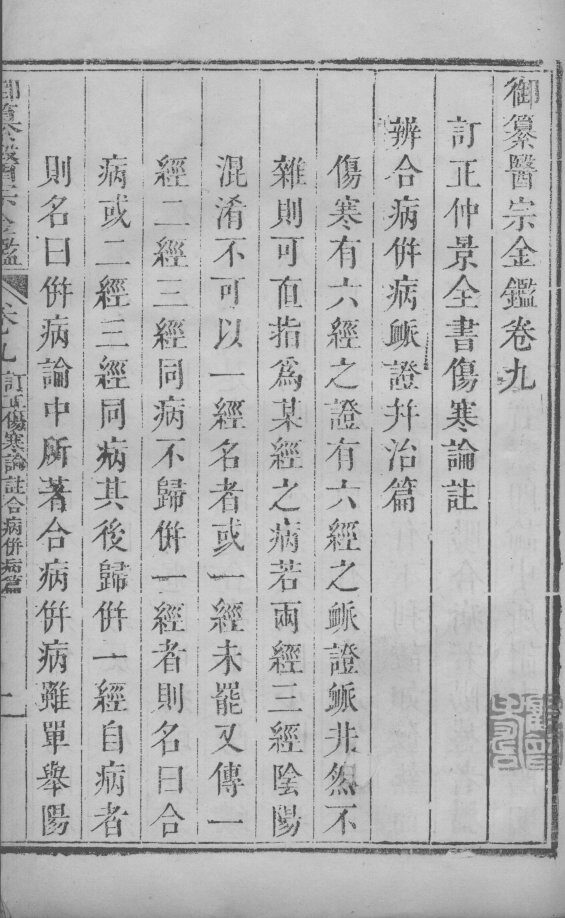 御纂醫宗金鑑卷九
訂正仲景全書傷寒論註
辨合病併病脈證并治篇
傷寒有六經之證有六經之脈證脈井然不
雜則可直指爲某經之病若兩經三經陰陽
混淆不可以一經名者或一經未罷又傳一
經二經三經同病不歸併一經者則名曰合
病或二經三經同病其後歸併一經自病者
則名曰併病論中所著合病併病雖單舉陽
御纂醫宗金鑑 卷九 訂正傷寒論註合病併病篇 一